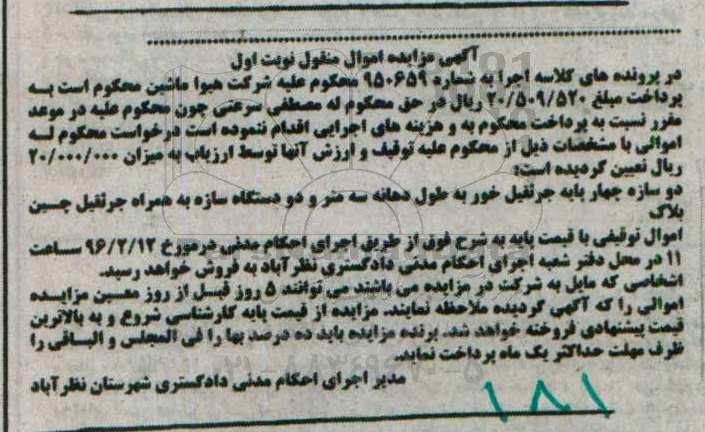 آگهی مزایده اموال منقول نوبت اول
در پرونده های کلاسه اجرا به شماره ۹۵۰۶۵۹ محکوم علیه شرکت هیوا ماشین محکوم است به
پرداخت مبلغ ۲۰/۵۰۹/۵۲۰ ریال در حق محکوم له مصطفی سرعتی چون محکوم علیه در موعد
مقرر نسبت به پرداخت محکوم به و هزینه های اجرایی اقدام ننموده است درخواست محکوم له
اموالی با مشخصات ذیل از محکوم علیه توقیف و ارزش آنها توسط ارزیاب به میزان ۲۰/۰۰۰/۰۰۰
ریال تعیین گردیده است:
دو سازه چهار پایه جرثقیل خور به طول دهانه سه متر و دو دستگاه سازه به همراه جرثقیل چین
بلاک
اموال توقیفی با قیمت پایه به شرح فوق از طریق اجرای احکام مدنی درمورخ ۹۶/۲/۱۲ ساعت
۱۱ در محل دفتر شعبه اجرای احکام مدنی دادگستری نظرآباد به فروش خواهد رسید.
اشخاصی که مایل به شرکت در مزایده می باشند می توانند ۵ روز قبل از روز معین مزایده
اموالی را که آگهی گردیده ملاحظه نمایند. مزایده از قیمت پایه کارشناسی شروع و به بالاترین
قیمت پیشنهادی فروخته خواهد شد. برنده مزایده باید ده درصد بها را فی المجلس و الباقی را
ظرف مهلت حداکثر یک ماه پرداخت نماید.
مدیر اجرای احکام مدنی دادگستری شهرستان نظرآباد
۱۸۱